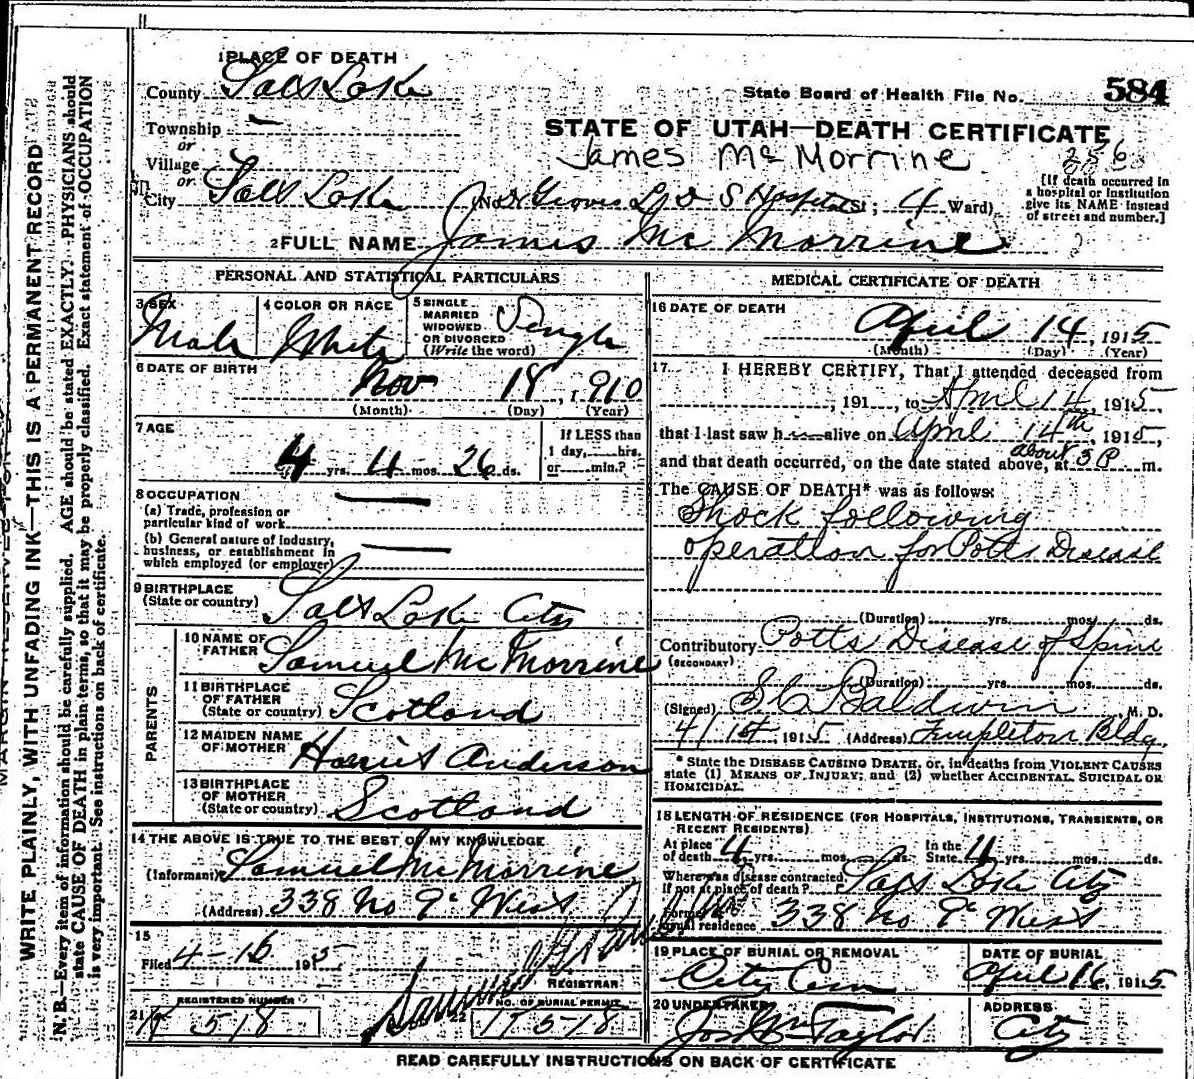 1 PLACE OF DEATH
County Salt Lake
State Board of Health File No. 584
Township —
or
Village
or
City Salt Lake
STATE OF UTAH—DEATH CERTIFICATE
James McMorrine
256
(No. Dr Groves L D S Hospital St; 4 Ward)
[If death occurred in
a hospital or institution
give its NAME instead
of street and number.]
2 FULL NAME James McMorrine
PERSONAL AND STATISTICAL PARTICULARS
3 SEX Male
4 COLOR OR RACE White
5 SINGLE
MARRIED
WIDOWED
OR DIVORCED
(Write the word) Single
6 DATE OF BIRTH Nov 18, 1910
(Month) (Day) (Year)
7 AGE
4 yrs. 4 mos. 26 ds.
If LESS than
1 day, hrs.
or min.?
8 OCCUPATION —
(a) Trade, profession or
particular kind of work
(b) General nature of industry,
business, or establishment in
which employed (or employer) —
9 BIRTHPLACE
(State or country) Salt Lake City
PARENTS
10 NAME OF
FATHER Samuel McMorrine
11 BIRTHPLACE
OF FATHER
(State or country) Scotland
12 MAIDEN NAME
OF MOTHER Harriet Anderson
13 BIRTHPLACE
OF MOTHER
(State or country) Scotland
14 THE ABOVE IS TRUE TO THE BEST OF MY KNOWLEDGE
(Informant) Samuel McMorrine
(Address) 338 No 9th West
15
Filed 4-16 1915
REGISTRAR
REGISTERED NUMBER
21 518
22 NO. OF BURIAL PERMIT
17518
MEDICAL CERTIFICATE OF DEATH
16 DATE OF DEATH
April 14, 1915
(Month) (Day) (Year)
17 I HEREBY CERTIFY, That I attended deceased from
, 191 , to April 14, 1915
that I last saw h alive on April 14th, 1915,
and that death occurred, on the date stated above, at about 3 P m.
The CAUSE OF DEATH* was as follows:
Shock following
operation for Potts Disease
(Duration) yrs. mos. ds.
Contributory Potts Disease of Spine
(SECONDARY)
(Duration) yrs. mos. ds.
(Signed) S C Baldwin M. D.
4/15, 1915 (Address) Templeton Bldg.
* State the DISEASE CAUSING DEATH, or, in deaths from VIOLENT CAUSES
state (1) MEANS OF INJURY; and (2) whether ACCIDENTAL, SUICIDAL OR
HOMICIDAL.
18 LENGTH OF RESIDENCE (FOR HOSPITALS, INSTITUTIONS, TRANSIENTS, OR
RECENT RESIDENTS)
At place
of death 4 yrs. mos. ds.
In the
State 4 yrs. mos. ds.
Where was disease contracted
If not at place of death? Salt Lake City
Former or
usual residence 338 No 9th West
19 PLACE OF BURIAL OR REMOVAL
City Cem
DATE OF BURIAL
April 16, 1915
20 UNDERTAKER
Jos Wm Taylor
ADDRESS
City
READ CAREFULLY INSTRUCTIONS ON BACK OF CERTIFICATE
WRITE PLAINLY, WITH UNFADING INK—THIS IS A PERMANENT RECORD
N. B.—Every item of information should be carefully supplied. AGE should be stated EXACTLY. PHYSICIANS should
state CAUSE OF DEATH in plain terms, so that it may be properly classified. Exact statement of OCCUPATION
is very important. See instructions on back of certificate.